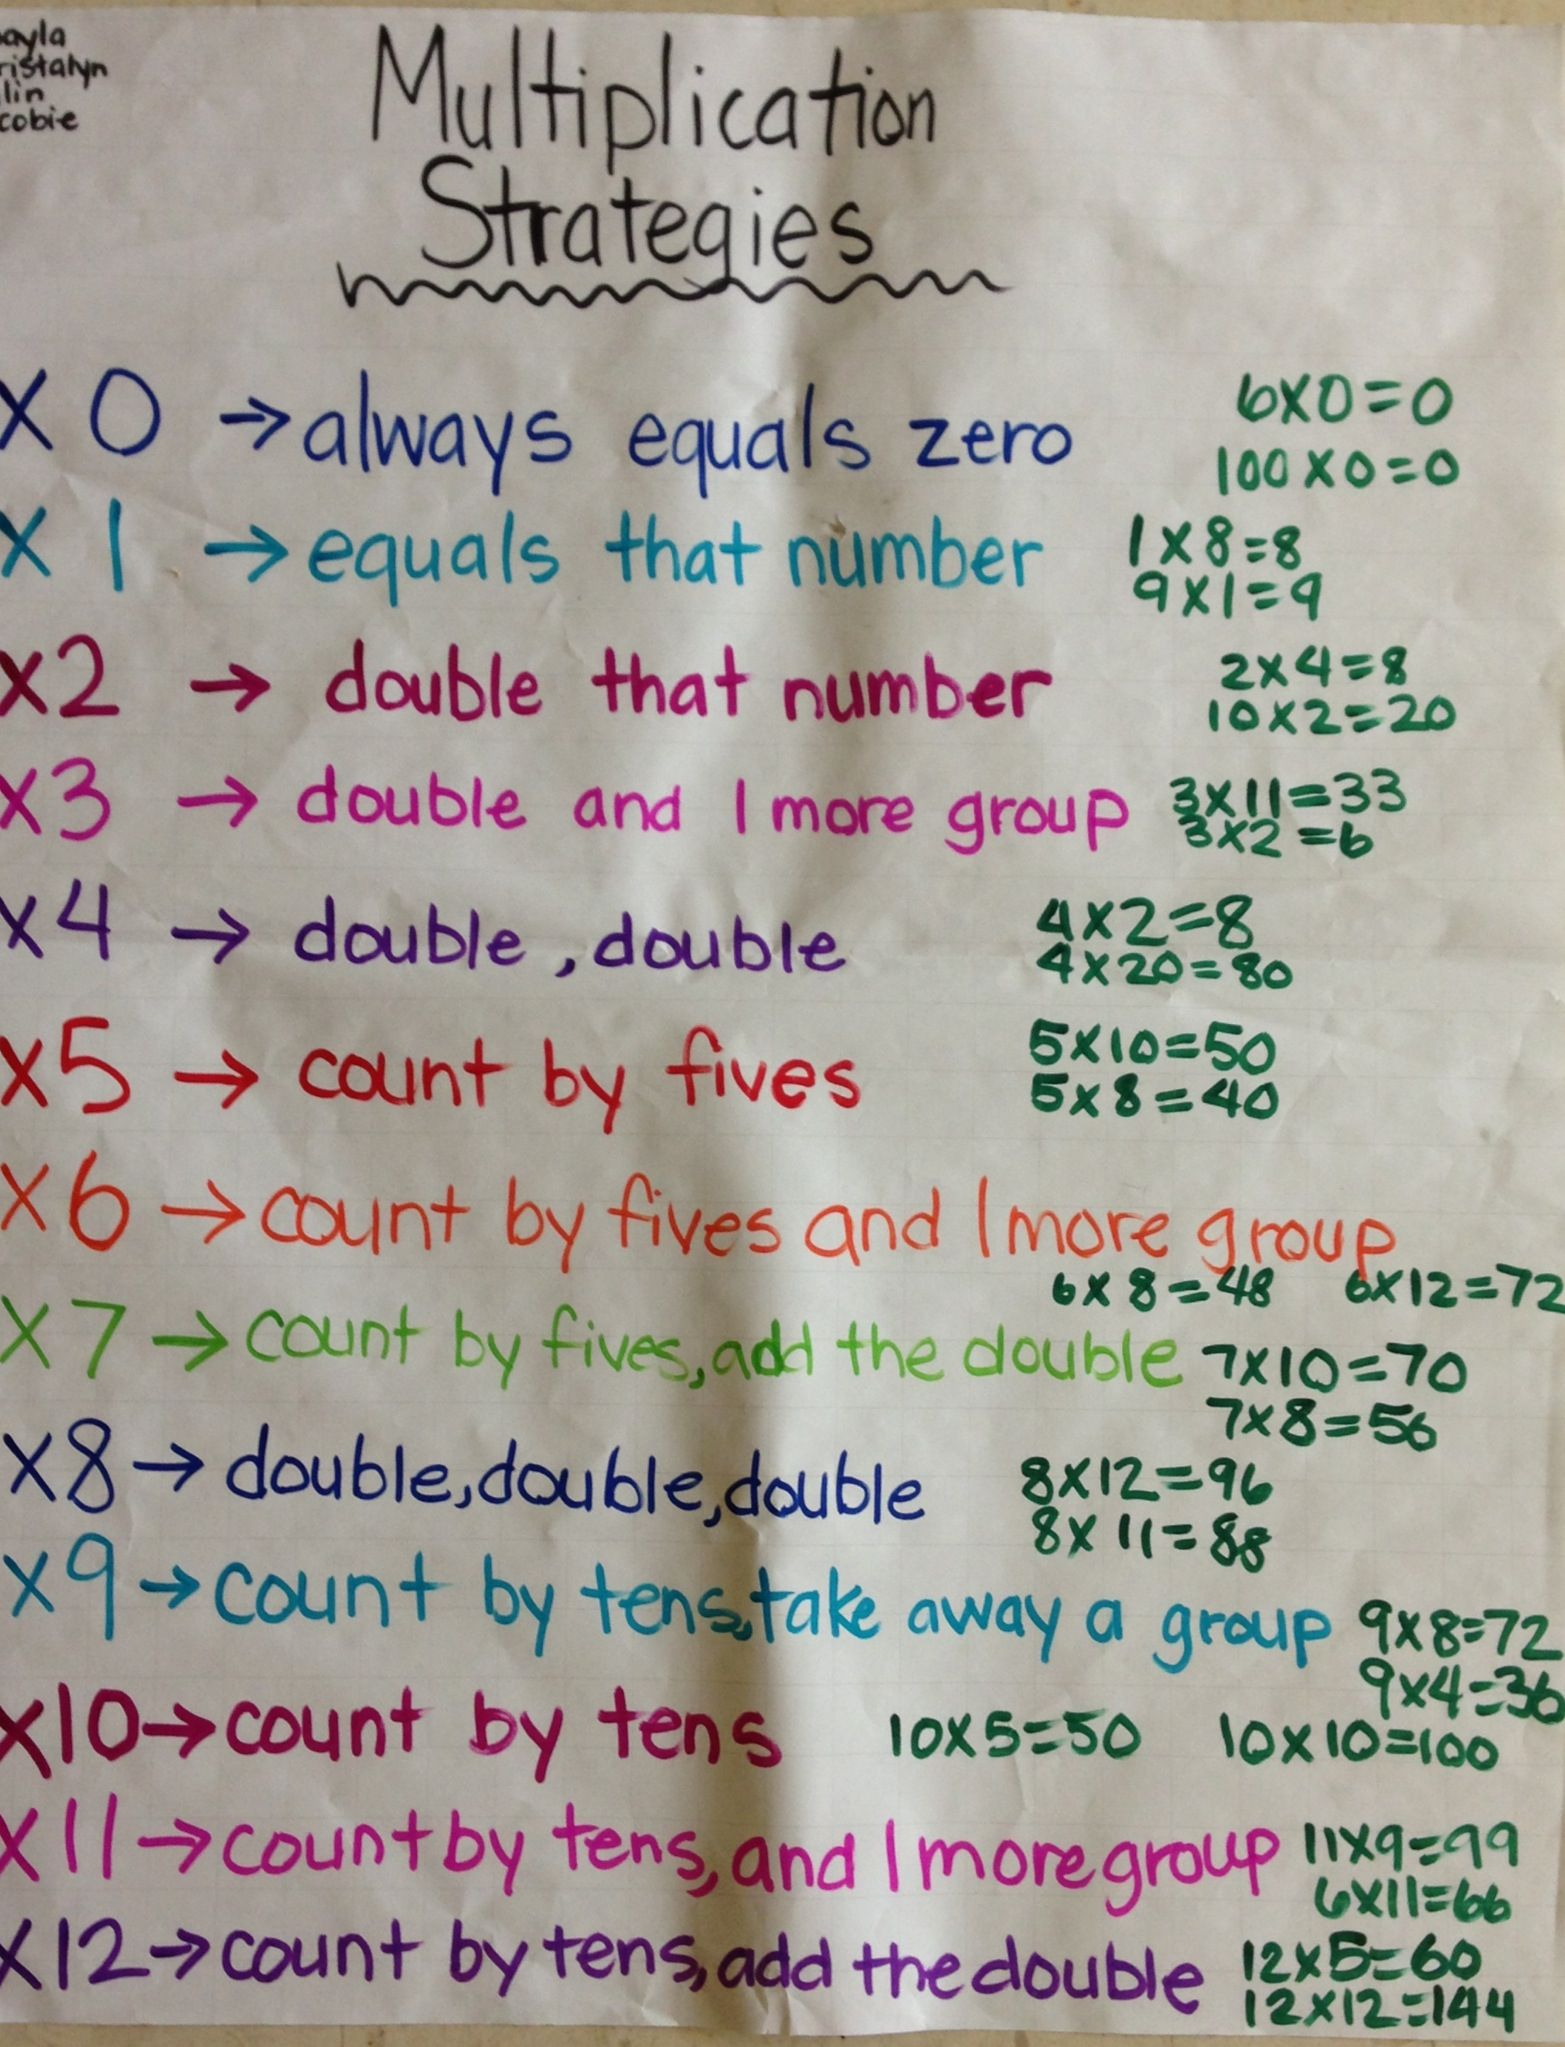 Multiplication
Strategies
x 0 → always equals zero
6x0=0
100x0=0
x 1 → equals that number
1x8=8
9x1=9
x2 → double that number
2x4=8
10x2=20
x3 → double and 1 more group
3x11=33
3x2=6
x4 → double, double
4x2=8
4x20=80
x5 → count by fives
5x10=50
5x8=40
x6 → count by fives and 1 more group
6x8=48 6x12=72
x7 → count by fives, add the double
7x10=70
7x8=56
x8 → double, double, double
8x12=96
8x11=88
x9 → count by tens, take away a group
9x8=72
9x4=36
x10 → count by tens 10x5=50 10x10=100
x11 → count by tens, and 1 more group
11x9=99
6x11=66
x12 → count by tens, add the double
12x5=60
12x12=144